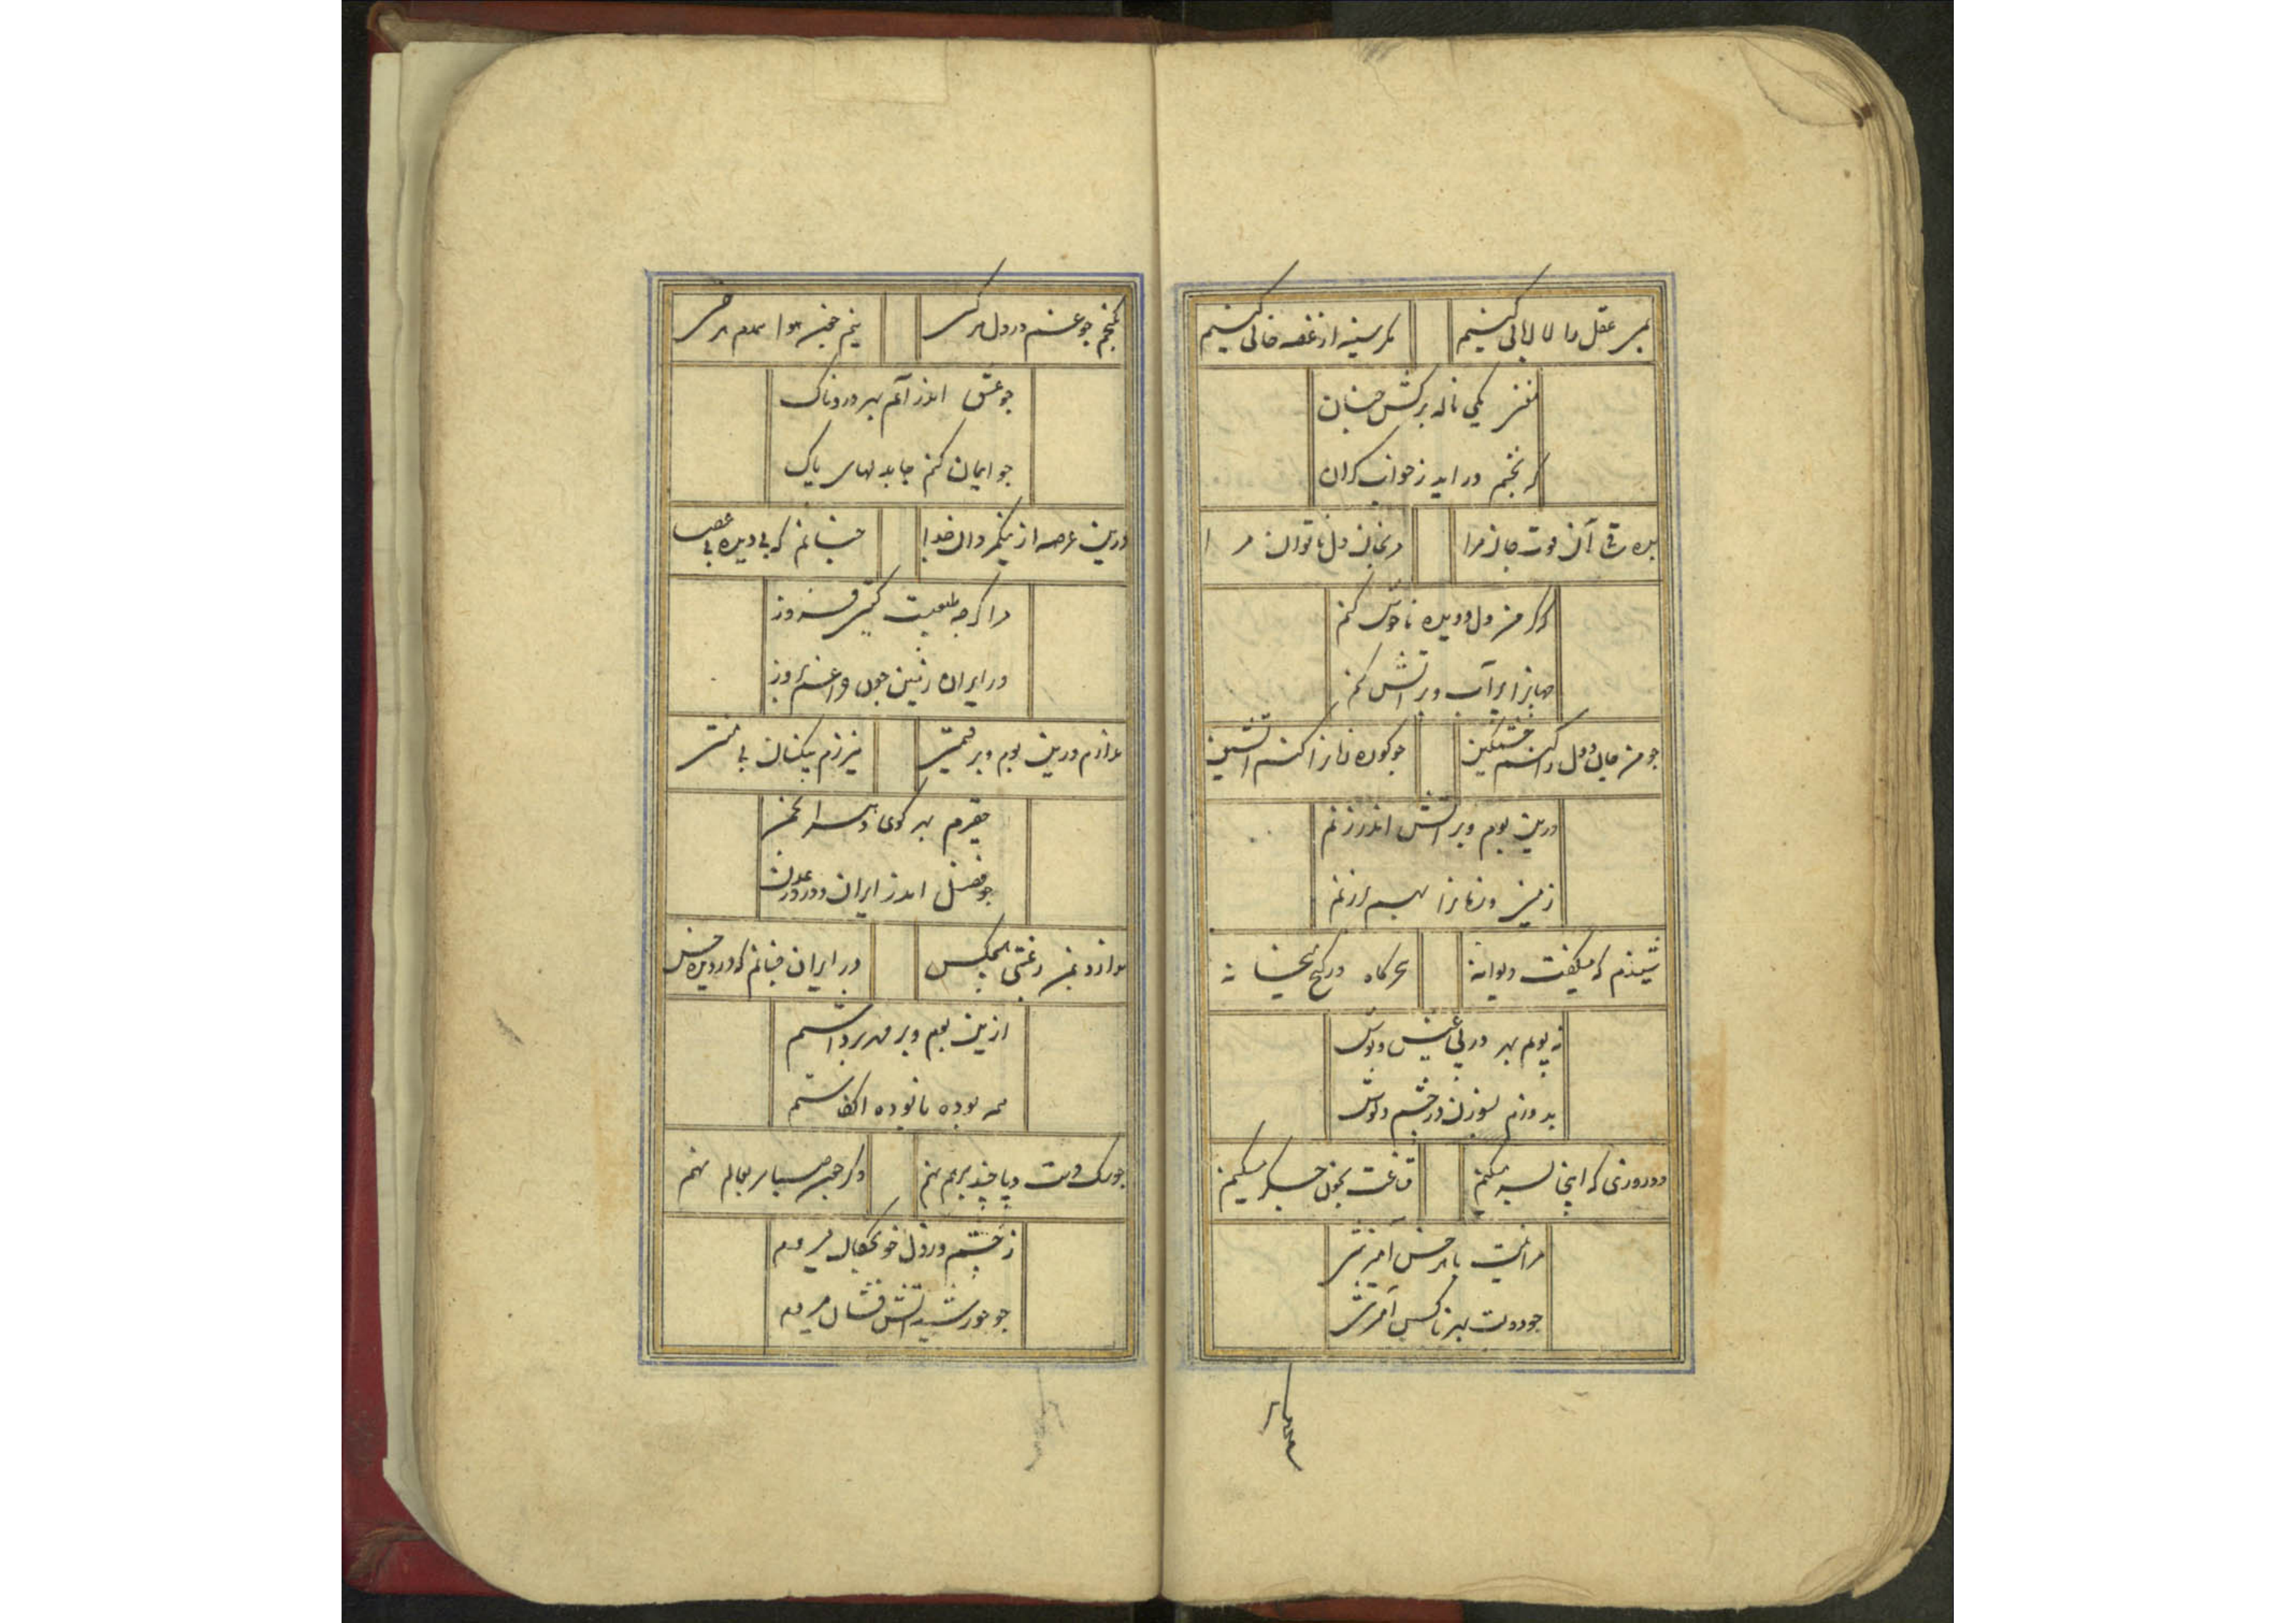 بمی عقل را لاابالی کنیم
مگر سینه از غصه خالی کنیم
مغنی یکی ناله برکش چنان
که بختم دراید ز خواب کران
بده ساقی آن قوت جان مرا
مرنجان دل ناتوان مرا
که من دل و دیده ناخوش کنم
جهانرا بر آب و بر آتش کنم
جو من جان و دل را کنم خشمکین
جو کوره زمانرا کنم آتشین
درین بوم و بر آتش اندر زنم
زمین و زمانرا بهم برزنم
شنیدم که میکفت دیوانه
سحرکاه در کنج میخانه
نه پویم بهر در پی عیش و نوش
بدوزم بسوزن در چشم و کوش
دو روزی که اینجا بسر میکنم
قناعت بخون جکر میکنم
مرا نیست با هر خس آمیزشی
جو دولت بهر ناکس آمیزشی
نکنجم جو غم در دل هر کسی
نیم جون هوا همدم هر خسی
جو عشق اندر آیم بهر دردناک
جو ایمان کنم جا بدلهای پاک
درین عرصه از نیکمردان خدا
جنانم که بی دیده بی عصا
مرا کرجه طبعیست کیتی فروز
در ایران زمین جون جراغم بروز
ندارم درین بوم و بر قیمتی
نیرزم بیکنان بی منتی
حقیرم بهر کوی و هر انجمن
جو فضل اندر ایران و در در عدن
ندارد بمن رغبتی هیچکس
در ایران جنانم که در دیده خس
ازین بوم و بر مهر برداشتم
همه بوده نابوده انکاشتم
جو رک دست و پا جند برهم نهم
دکر جون صبا سر بعالم نهم
ز چشم و ز دل خونجکان میروم
جو خورشید آتش فشان میروم